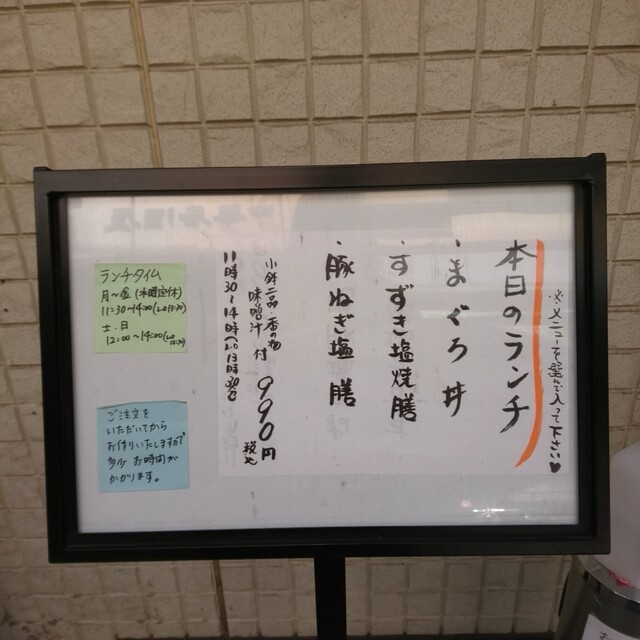 ※メニューを選んで入って下さい♥
本日のランチ
・まぐろ丼
・すずき塩焼膳
・豚ねぎ塩膳
小鉢二品・香物
味噌汁付
990円
税込
11時30~14時(L.O 13時30)
ランチタイム
月~金(木曜定休)
11:30~14:00(L.o 13:30)
土・日
12:00~14:00(L.o 13:30)
ご注文を
いただいてから
お作りいたしますので
多少お時間が
かかります。